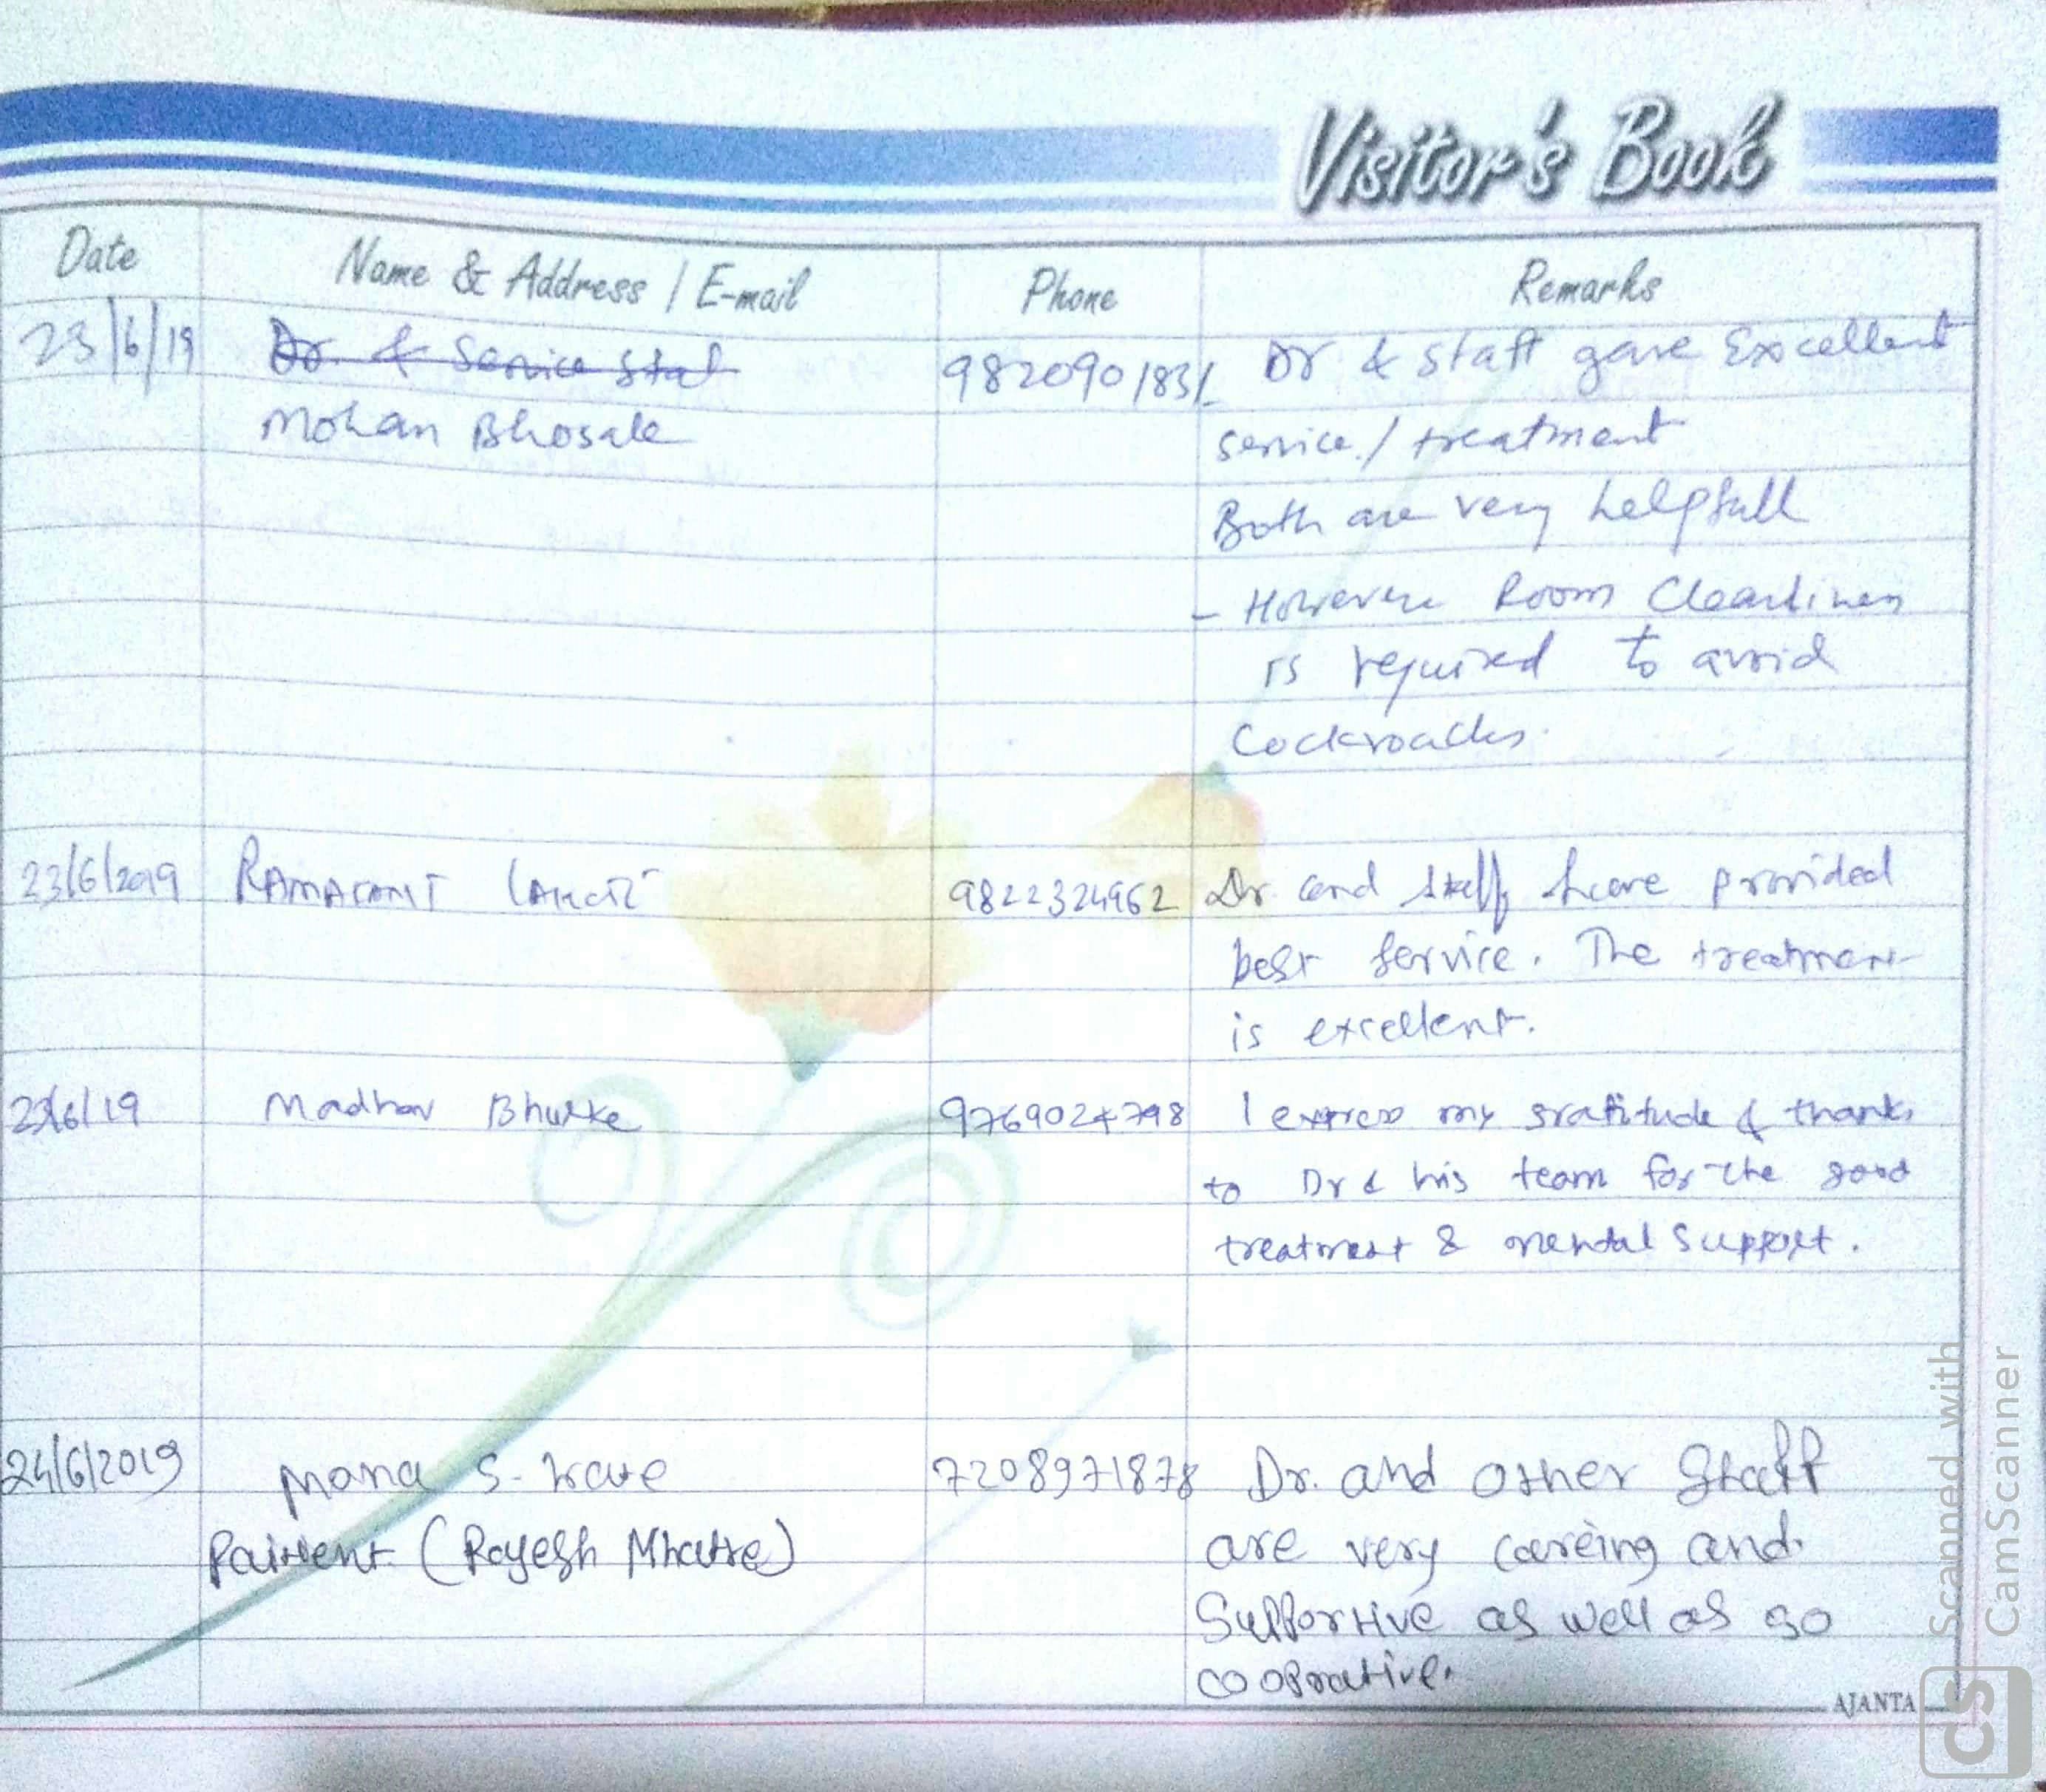 Visitor's Book
Date Name & Address / E-mail Phone Remarks
23/6/19 Dr. & Service Staf 9820901831 Dr & staff gave Excellent
Mohan Bhosale service / treatment
Both are very helpfull
- However Room Cleanliness
is required to avoid
Cockroaches.
23/6/2019 RAMAKANT 9822324962 Dr and staff have provided
best service. The treatment
is excellent.
23/6/19 Madhav Bhurke 9769024798 I express my gratitude & thanks
to Dr & his team for the good
treatment & mental support.
24/6/2019 Mona S. 7208971878 Dr. and other Staff
Paitient (Rajesh Mhatre) are very careing and
Supportive as well as so
cooprative.
AJANTA
Scanned with
CamScanner
CS